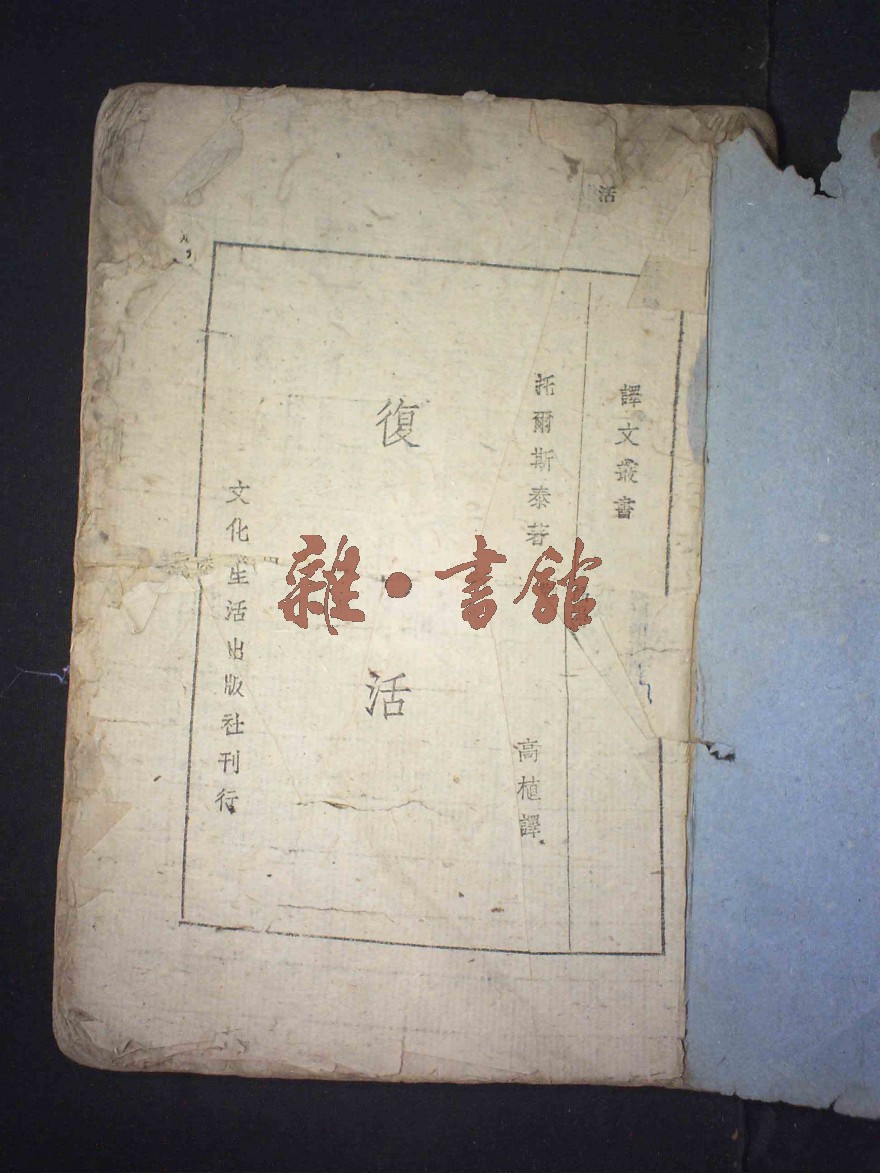 活
譯文叢書
托爾斯泰著
高植譯
復活
文化生活出版社刊行
雜·書館